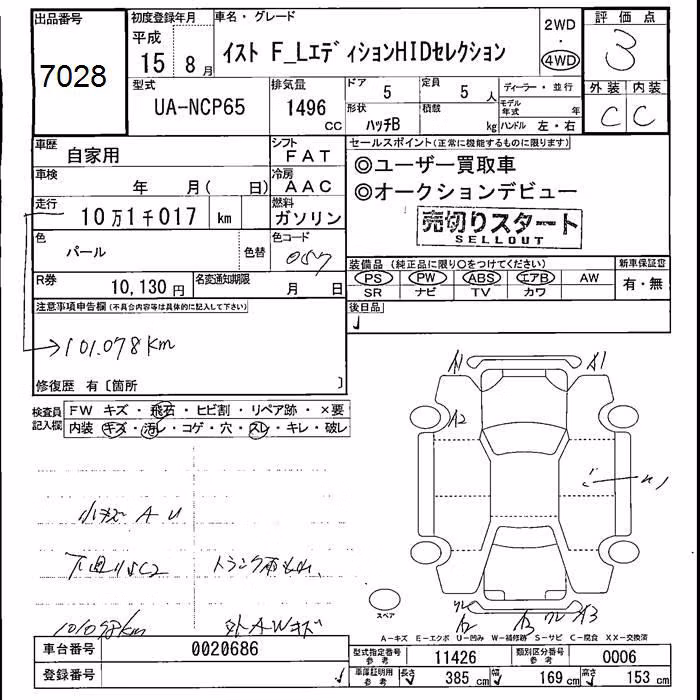 出品番号
7028
初度登録年月
平成
15 8月
車名・グレード
イスト F_LエディションHIDセレクション
2WD
・
4WD
評価点
3
外装 内装
C C
型式
UA-NCP65
排気量
1496
CC
ドア
5
定員
5 人
形状
ハッチB
積載
kg
ディーラー・並行
モデル年式 年
ハンドル 左・右
車歴
自家用
シフト
FAT
車検
年 月( 日)
冷房
AAC
走行
10万1千017 km
燃料
ガソリン
色
パール
色替
色コード
057
R券
10,130円
名変通知期限
月 日
セールスポイント(正常に機能するものに限ります)
◎ユーザー買取車
◎オークションデビュー
売切りスタート
SELLOUT
装備品 (純正品に限り○をつけてください)
PS PW ABS エアB AW
SR ナビ TV カワ
新車保証書
有・無
後日品
注意事項申告欄(不具合内容等は具体的に記入して下さい)
101.078Km
修復歴 有〔箇所 〕
検査員記入欄
FW キズ・飛石・ヒビ割・リペア跡・×要
内装 キズ・汚レ・コゲ・穴・スレ・キレ・破レ
小キズ A U
下廻りSC2
トランク雨もれ
101098km
外AWキズ
A1 A1
A2
U1
A2 A2 A3
スペア
A-キズ E-エクボ U-凹み W-補修跡 S-サビ C-腐食 XX-交換済
車台番号
0020686
登録番号
型式指定番号
参考
11426
類別区分番号
参考
0006
車庫証明用
参考
長さ 385 cm
幅 169 cm
高さ 153 cm